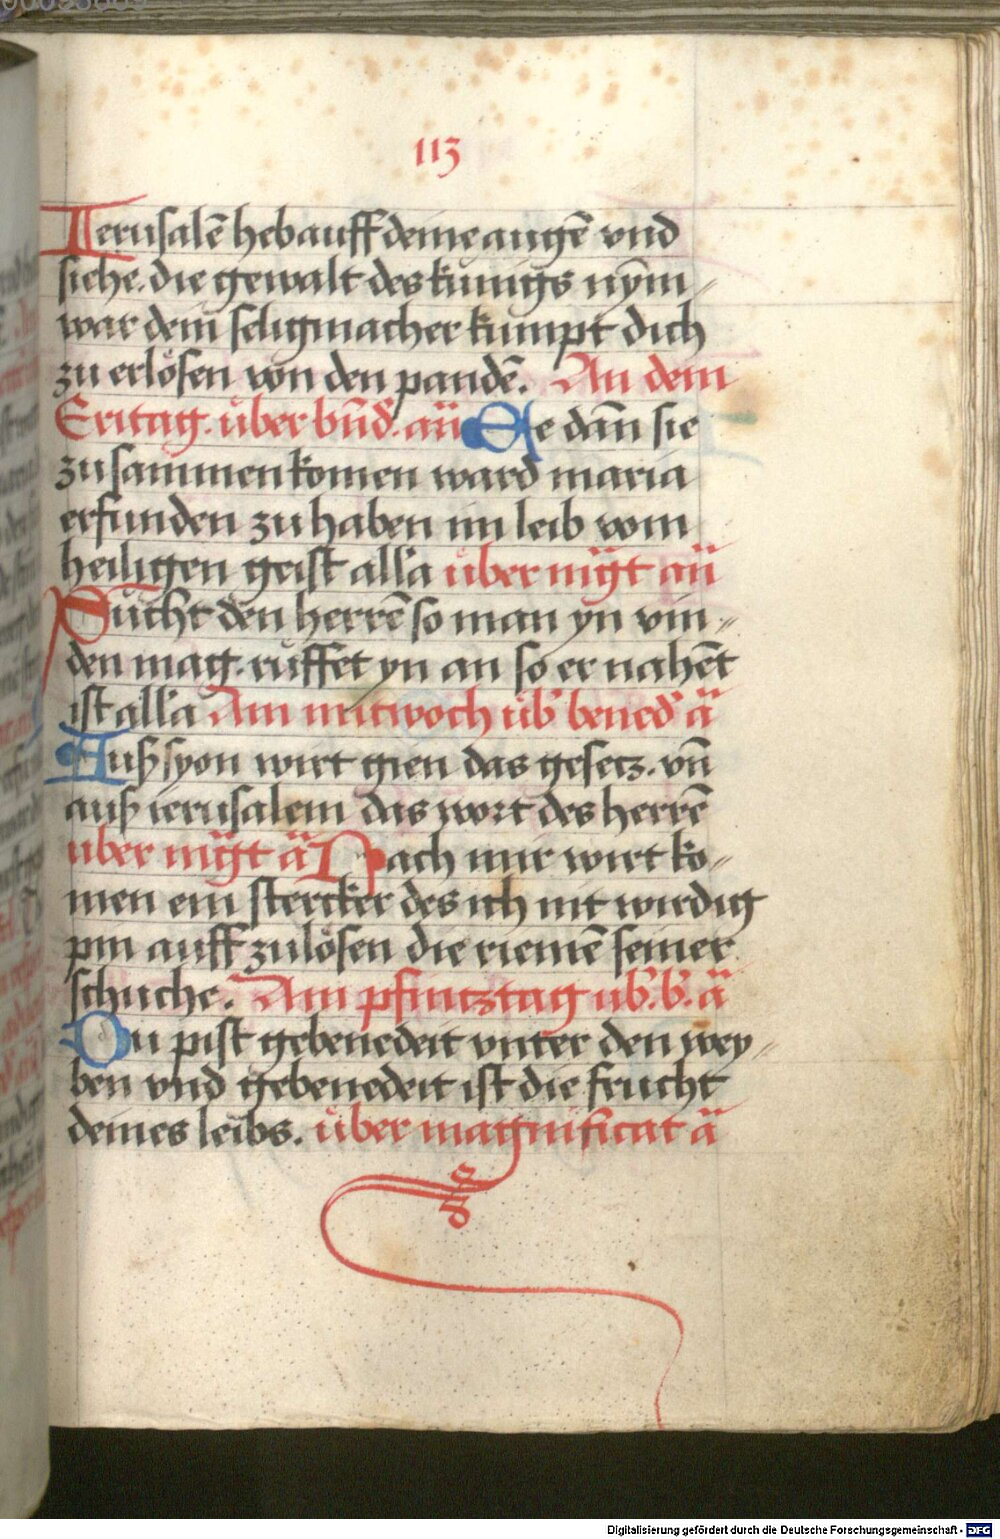 113
Jerusalē heb auff deine augē vnd
siehe. die gewalt des kunigs nȳm
war dein seligmacher kumpt dich
zu erlösen von den pandē. An dem
Eritag. über būd. an̄ Ee dan̄ sie
zusammen komen ward maria
erfunden zu haben im leib vom
heiligen geist alla über mgt an̄
Sucht den herrē so man yn vin-
den mag. rüffet yn an so er nahēt
ist alla Am mitwoch üb bened ā
Auß syon wirt gien das gesetz. vn̄
auß ierusalem das wort des herrē
über mgt ā Nach mir wirt ko-
men ein stercker des ich nit wirdig
pin auff zulösen die riemē seiner
schuche. Am pfintztag üb. b. ā
Du pist gebenedeit vnter den wey-
ben vnd gebenedeit ist die frucht
deines leibs. über magnificat ā
Digitalisierung gefördert durch die Deutsche Forschungsgemeinschaft - DFG